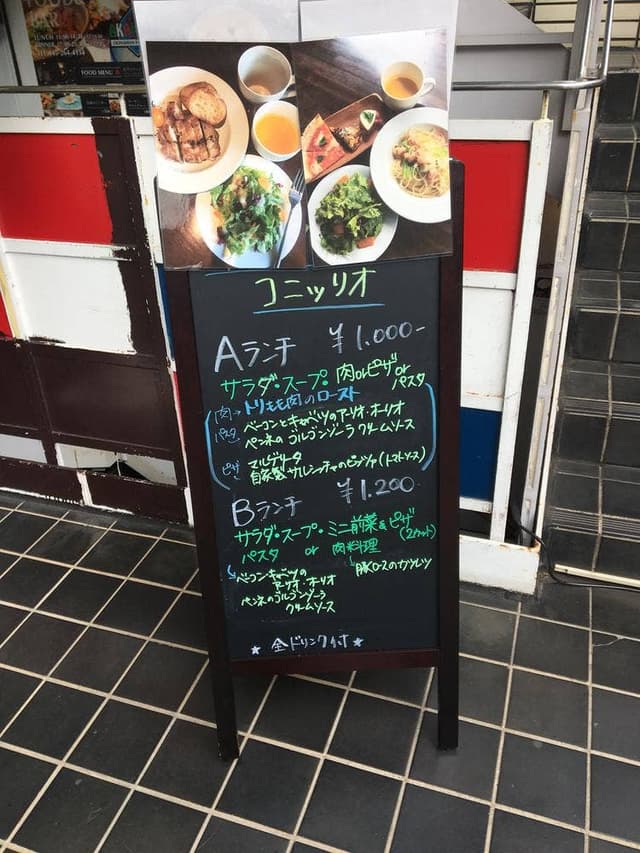 FOOD&
BAR
FOOD MENU
コニッリオ
Aランチ ¥1,000-
サラダ・スープ・肉orピザor
パスタ
肉→トリもも肉のロースト
パスタ ベーコンとキャベツのアーリオ・オーリオ
ペンネのゴルゴンゾーラクリームソース
ピザ マルゲリータ
自家製サルシッチャのピッツァ(トマトソース)
Bランチ ¥1,200-
サラダ・スープ・ミニ前菜&ピザ
(2カット)
パスタ or 肉料理
ベーコンキャベツの 豚ロースのカツレツ
アーリオ・オーリオ
ペンネのゴルゴンゾーラ
クリームソース
★全ドリンク付★